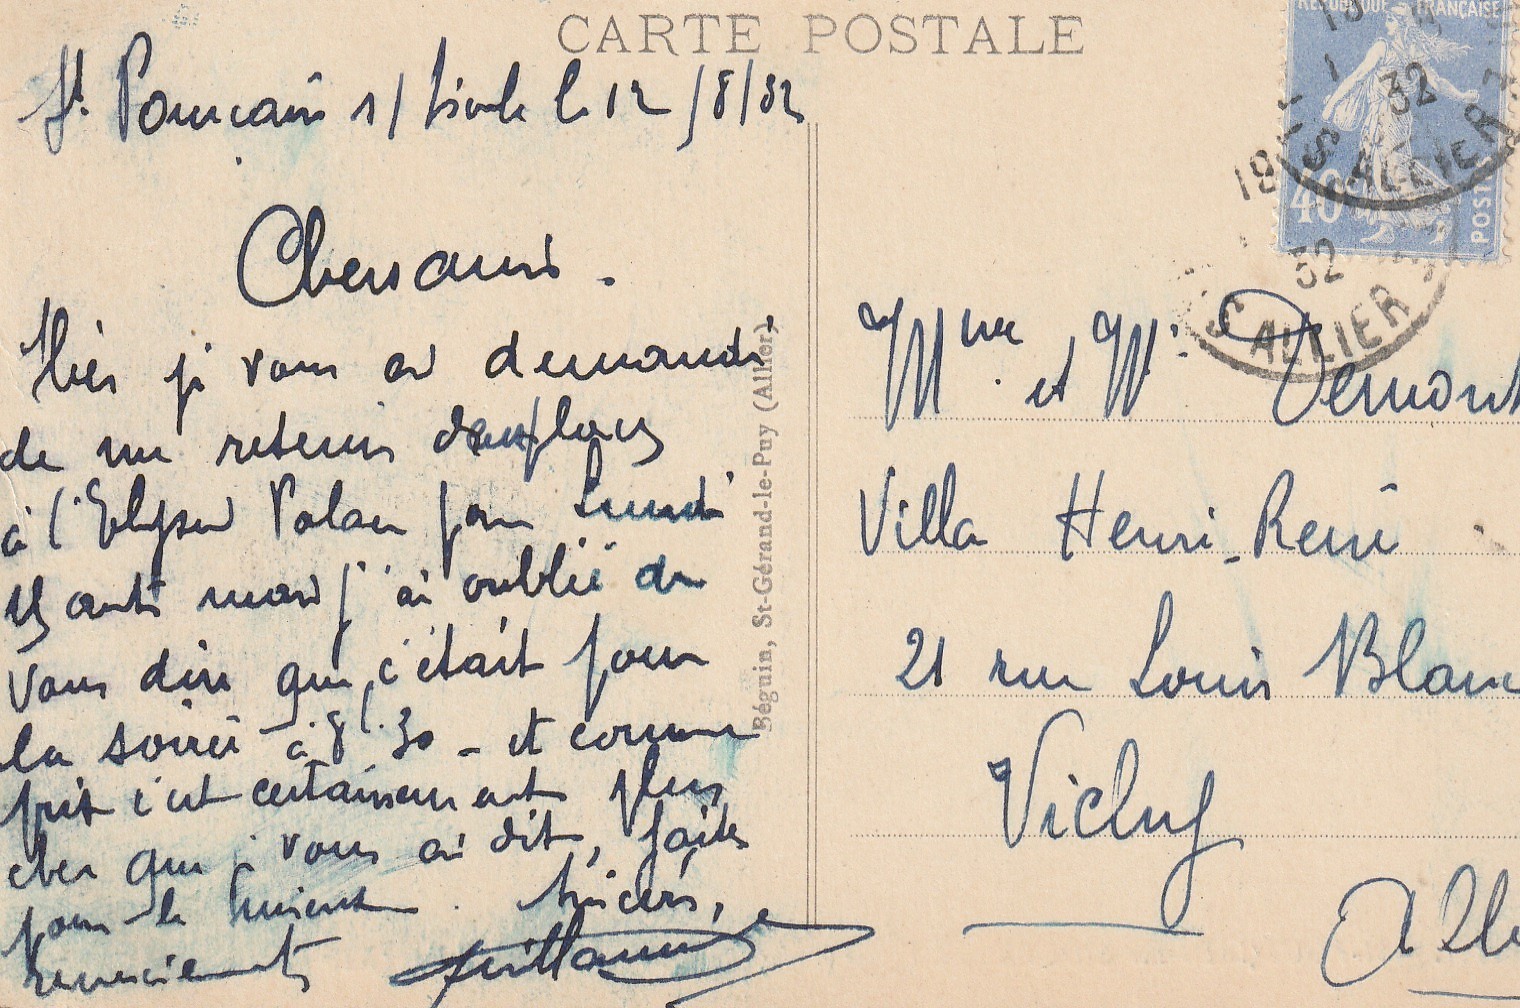 CARTE POSTALE
St. Pourcain s/ Sioule le 12/8/32
Chers amis.
Hier je vous ai demandé
de me retenir deux places
à l'Elysée Palace pour Lundi
15 août mais j'ai oublié de
vous dire que c'était pour
la soirée à 8h.30 - et comme
prix c'est certainement plus
cher que je vous ai dit, faites
pour le mieux. Sincères,
remerciements
Béguin, St-Gérand-le-Puy (Allier)
RÉPUBLIQUE FRANÇAISE
40
POSTES
32
ALLIER
19
32
ALLIER
Mme et Mr. Demont
Villa Henri-René
21 rue Louis Blanc
Vichy
Alli